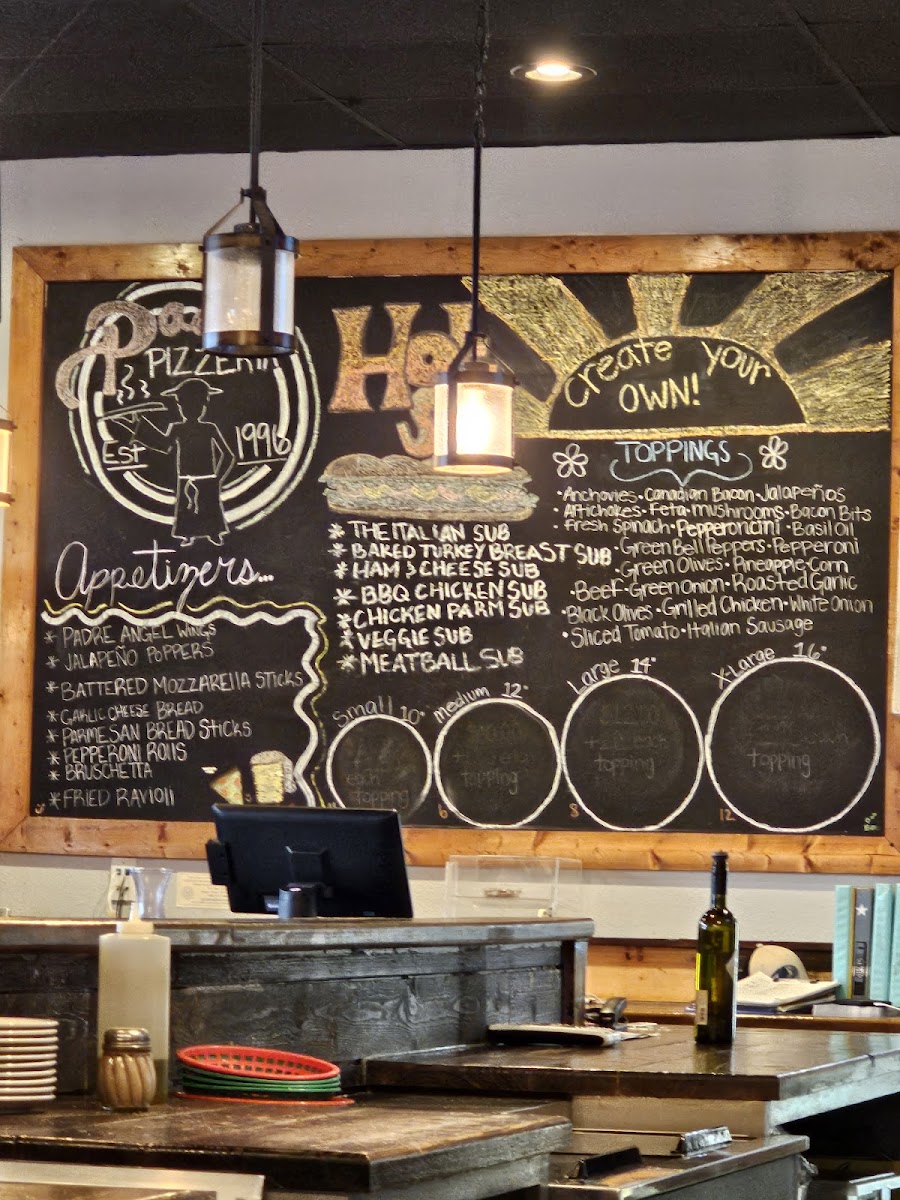 PIZZERIA
Est 1996
Appetizers...
* PADRE ANGEL WINGS
* JALAPEÑO POPPERS
* BATTERED MOZZARELLA STICKS
* GARLIC CHEESE BREAD
* PARMESAN BREAD STICKS
* PEPPERONI ROLLS
* BRUSCHETTA
* FRIED RAVIOLI
* THE ITALIAN SUB
* BAKED TURKEY BREAST SUB
* HAM & CHEESE SUB
* BBQ CHICKEN SUB
* CHICKEN PARM SUB
* VEGGIE SUB
* MEATBALL SUB
Create Your
OWN!
TOPPINGS
•Anchovies•Canadian Bacon•Jalapeños
•Artichokes•Feta•mushrooms•Bacon Bits
•Fresh Spinach•Pepperoncini•Basil Oil
•Green Bell Peppers•Pepperoni
•Green Olives•Pineapple•Corn
•Beef•Green Onion•Roasted Garlic
•Black Olives•Grilled Chicken•White Onion
•Sliced Tomato•Italian Sausage
Small 10"
each
topping
medium 12"
topping
6
Large 14"
topping
8
X-Large 16"
topping
12